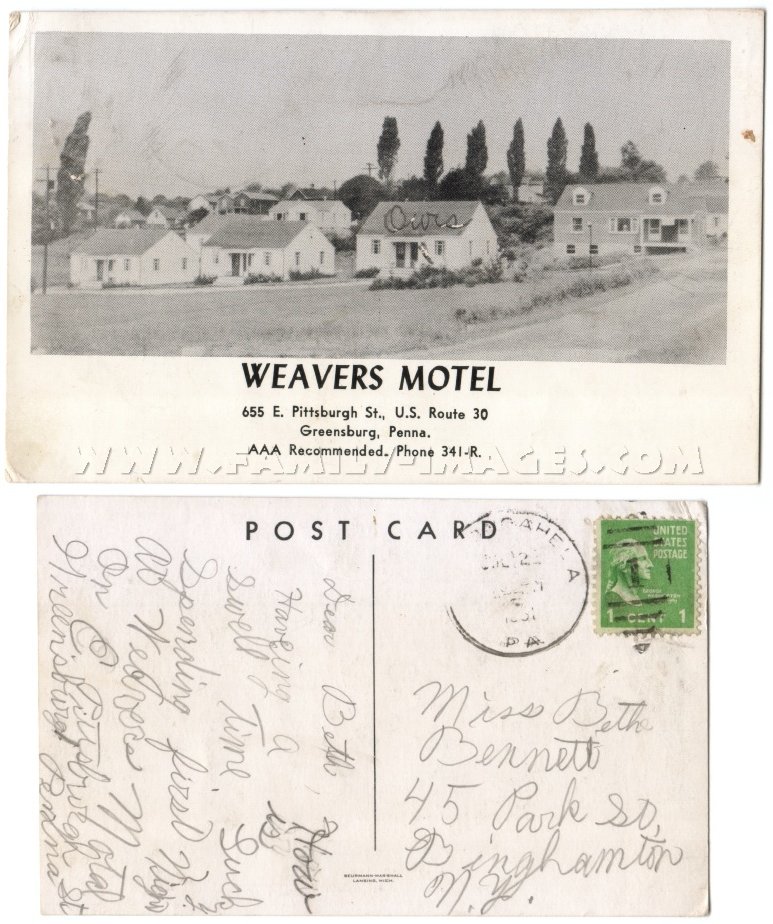 Ours
WEAVERS MOTEL
655 E. Pittsburgh St., U.S. Route 30
Greensburg, Penna.
AAA Recommended. Phone 341-R.
WWW.FAMILY-IMAGES.COM
POST CARD
GAHELA
1951
PA
UNITED
STATES
POSTAGE
GEORGE WASHINGTON
1 CENT 1
Dear Beth, How is
Having a
swell Time
Spending first Night
At Motel
on E Pittsburgh St
Greensburg Penna
Miss Beth
Bennett
45 Park St,
Binghamton
N.Y.
BEURMANN-MARSHALL
LANSING, MICH.